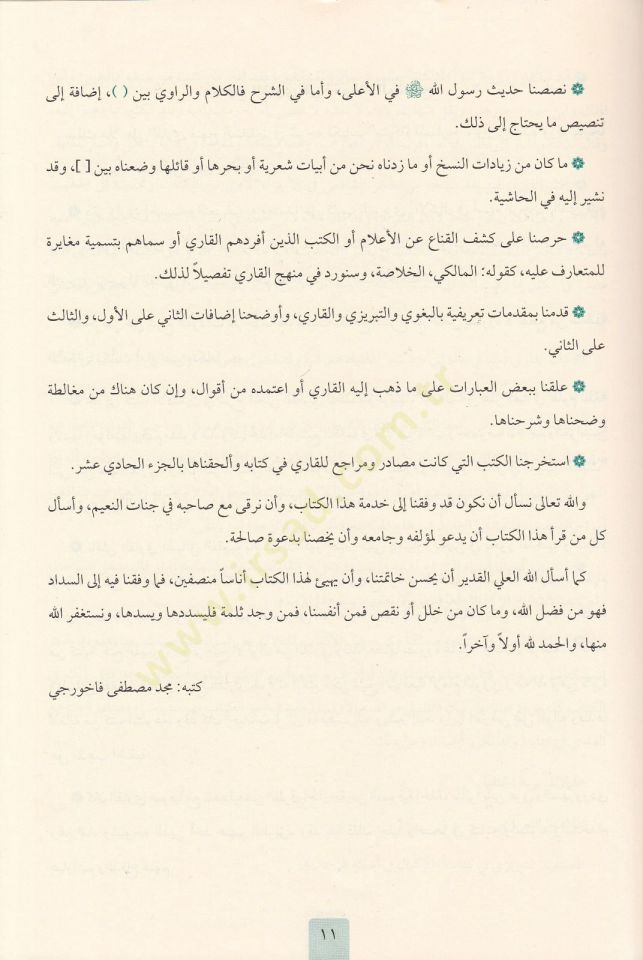 ❁ نصصنا حديث رسول الله ﷺ في الأعلى، وأما في الشرح فالكلام والراوي بين ( )، إضافة إلى
تنصيص ما يحتاج إلى ذلك.
❁ ما كان من زيادات النسخ أو ما زدناه نحن من أبيات شعرية أو بحرها أو قائلها وضعناه بين [ ]، وقد
نشير إليه في الحاشية.
❁ حرصنا على كشف القناع عن الأعلام أو الكتب الذين أفردهم القاري أو سماهم بتسمية مغايرة
للمتعارف عليه، كقوله: المالكي، الخلاصة، وسنورد في منهج القاري تفصيلاً لذلك.
❁ قدمنا بمقدمات تعريفية بالبغوي والتبريزي والقاري، وأوضحنا إضافات الثاني على الأول، والثالث
على الثاني.
❁ علقنا ببعض العبارات على ما ذهب إليه القاري أو اعتمده من أقوال، وإن كان هناك من مغالطة
وضحناها وشرحناها.
❁ استخرجنا الكتب التي كانت مصادر ومراجع للقاري في كتابه وألحقناها بالجزء الحادي عشر.
والله تعالى نسأل أن نكون قد وفقنا إلى خدمة هذا الكتاب، وأن نرقى مع صاحبه في جنات النعيم، وأسأل
كل من قرأ هذا الكتاب أن يدعو لمؤلفه وجامعه وأن يخصنا بدعوة صالحة.
كما أسأل الله العلي القدير أن يحسن خاتمتنا، وأن يهيئ لهذا الكتاب أناساً منصفين، فما وفقنا فيه إلى السداد
فهو من فضل الله، وما كان من خلل أو نقص فمن أنفسنا، فمن وجد ثلمة فليسددها ويسدها، ونستغفر الله
منها، والحمد لله أولاً وآخراً.
كتبه: مجد مصطفى فاخورجي
www.irsad.com.tr
١١